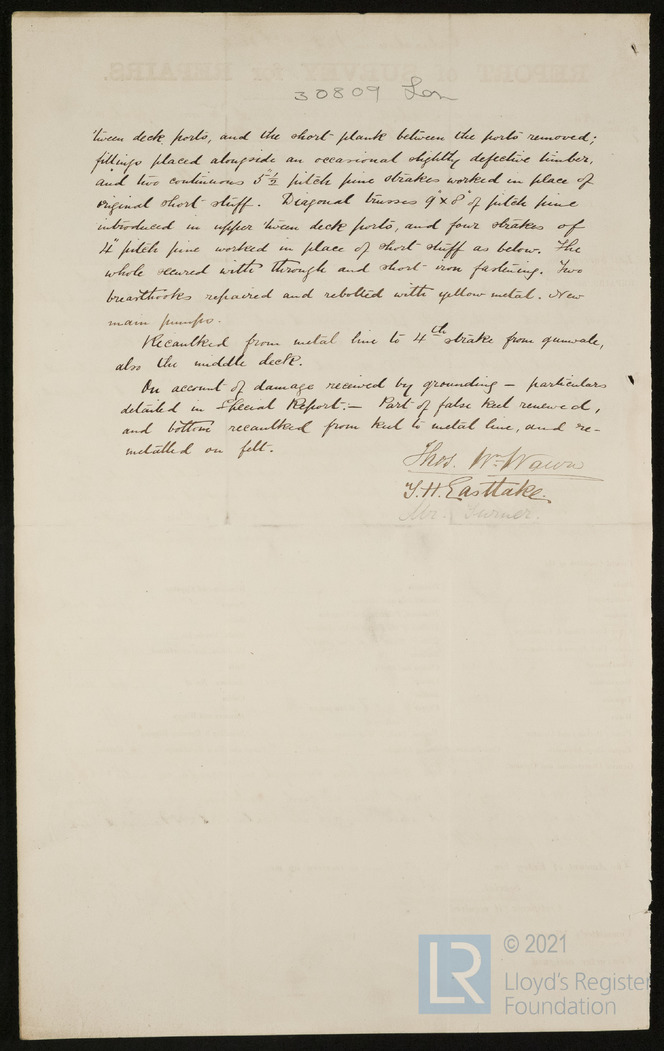 30809 Lon
'tween deck ports, and the short plank between the ports removed;
fillings placed alongside an occasional slightly defective timber,
and two continuous 5"½ pitch pine strakes worked in place of
original short stuff. Diagonal trusses 9" x 8" of pitch pine
introduced in upper 'tween deck ports, and four strakes of
4" pitch pine worked in place of short stuff as below. The
whole secured with through and short iron fastening. Two
breasthooks repaired and rebolted with yellow metal. New
main pumps.
Recaulked from metal line to 4th strake from gunwale,
also the middle deck.
On account of damage received by grounding – particulars
detailed in Special Report:– Part of false keel renewed,
and bottom recaulked from keel to metal line, and re-
metalled on felt.
Thos. Wm. Wawn
T. H. Eastlake.
Mr. Turner.
LR
© 2021
Lloyd's Register
Foundation